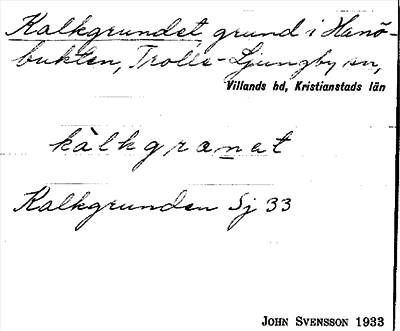 Kalkgrundet, grund i Hanö-
bukten, Trolle-Ljungby sn,
Villands hd, Kristianstads län
kàlkgrœnət
Kalkgrunden Sj 33
JOHN SVENSSON 1933